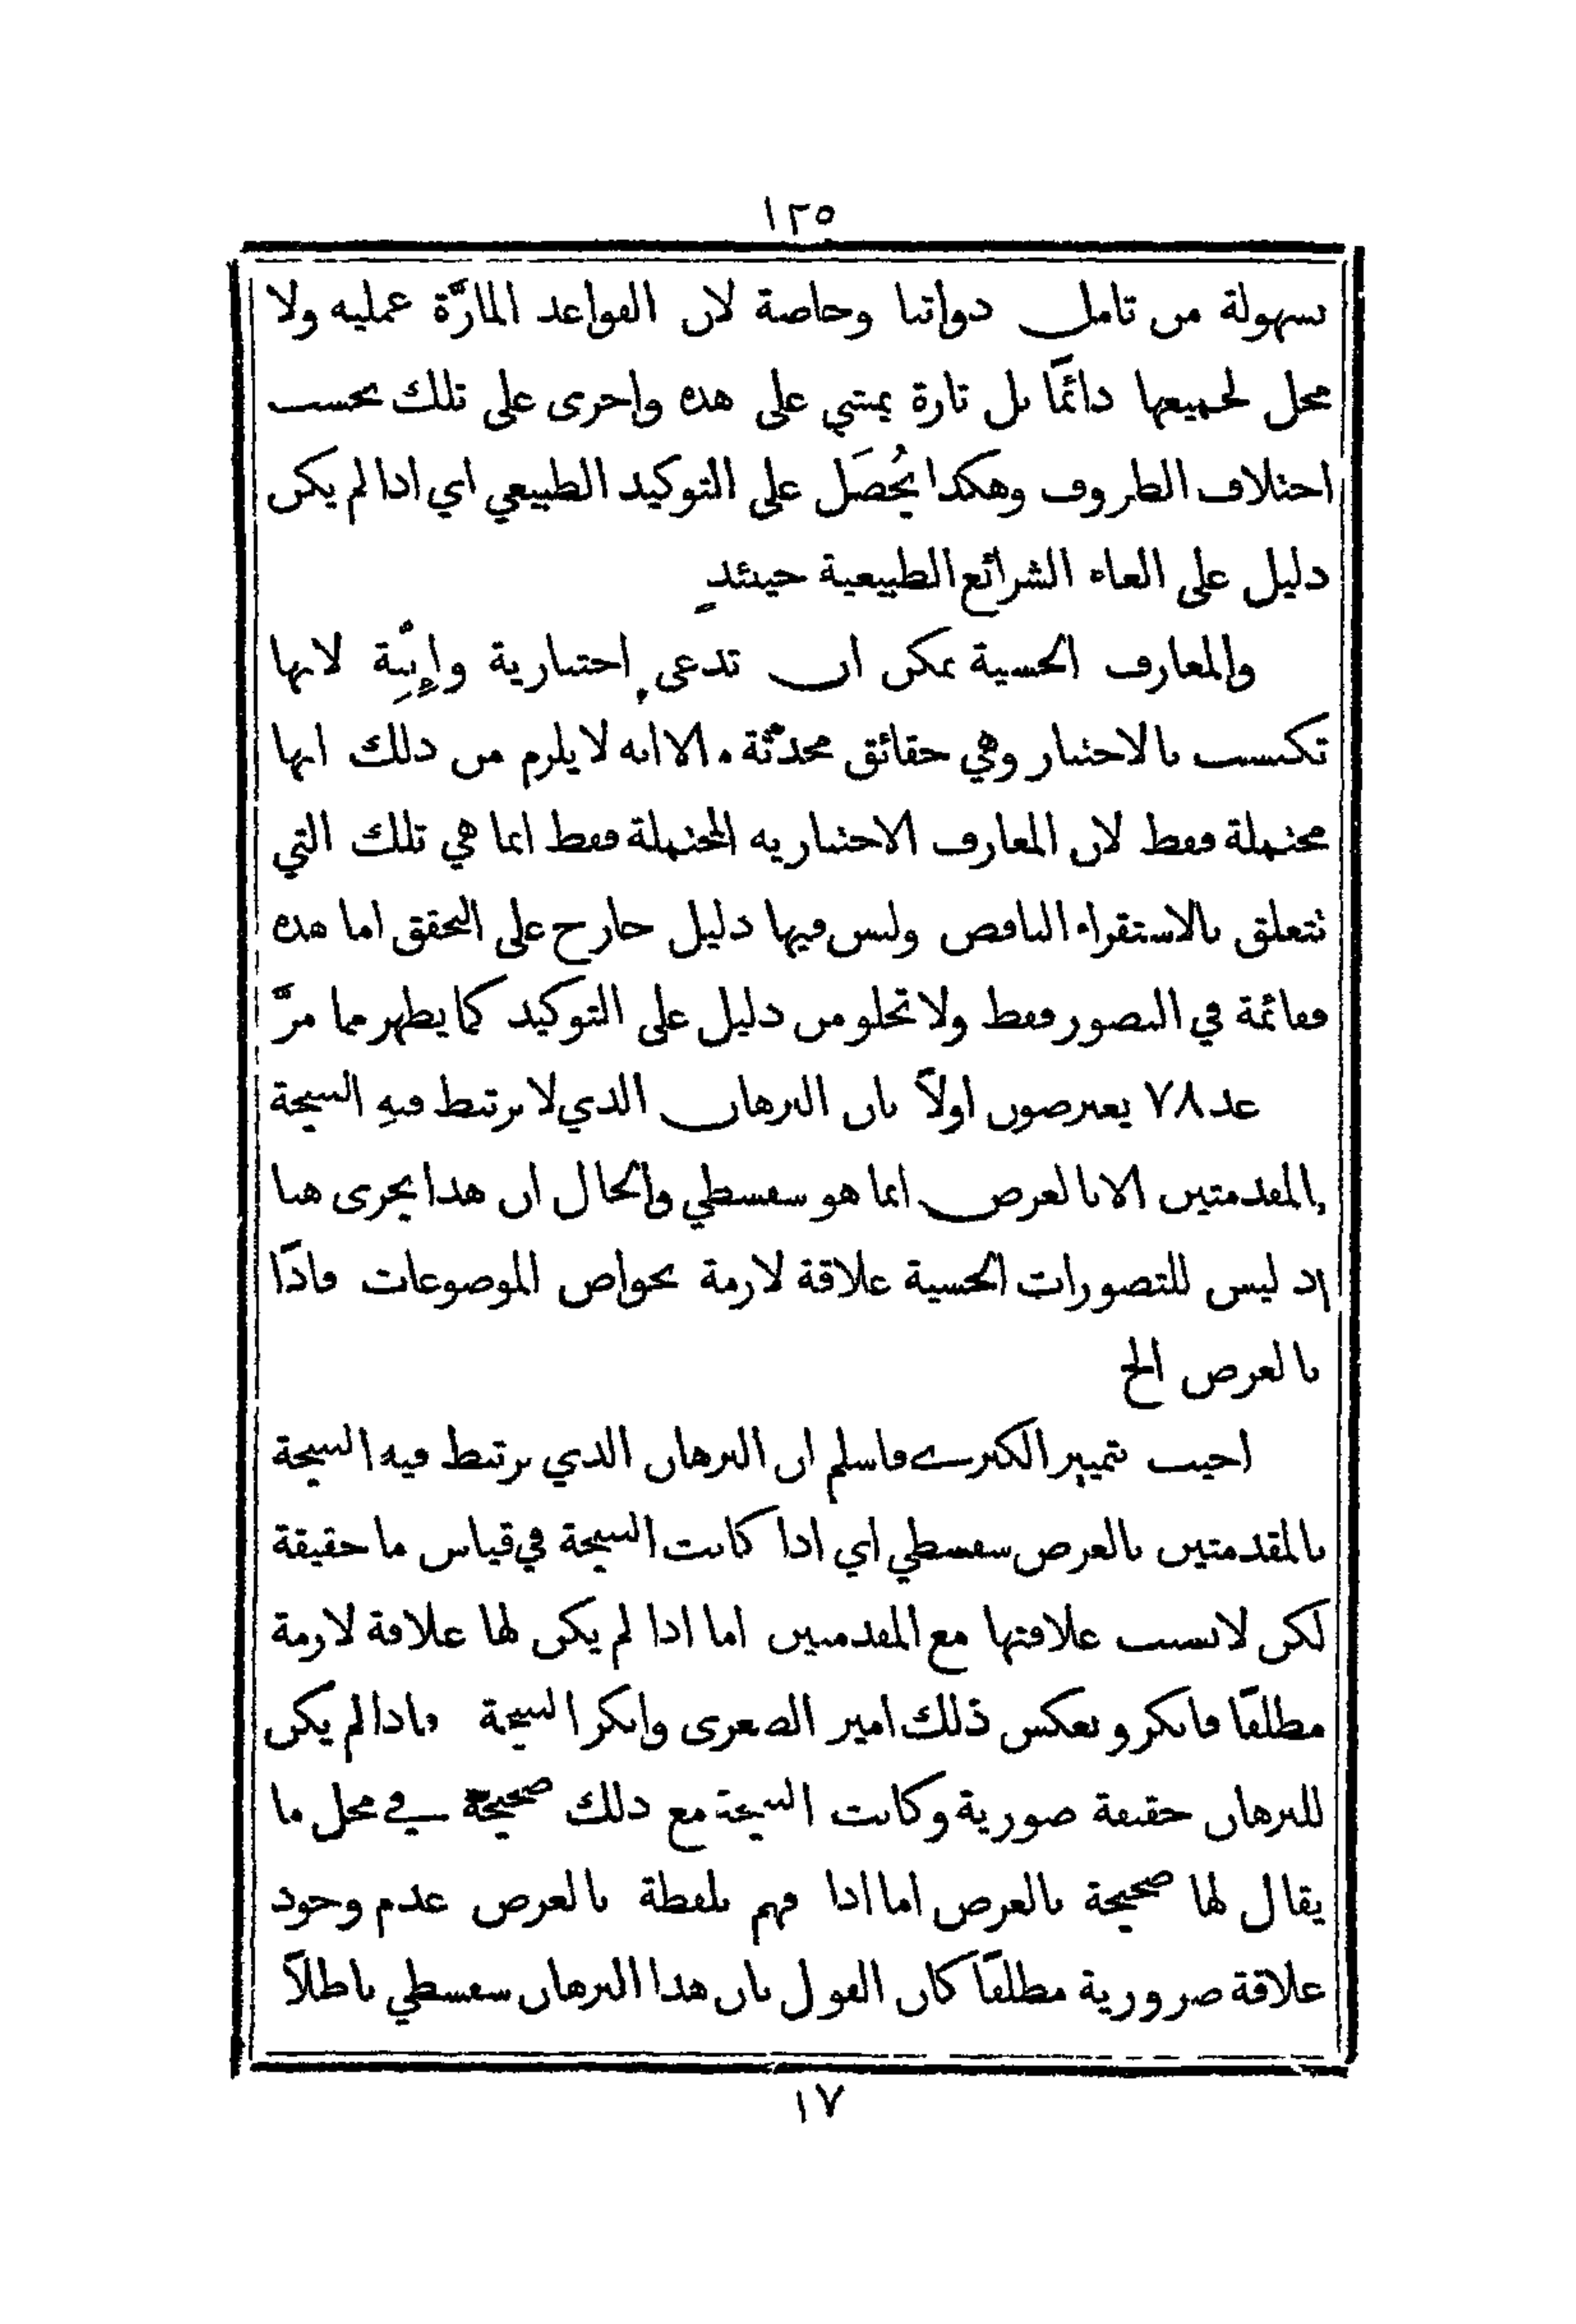 ١٢٥
بسهولة من تامل ذواتنا وخاصة لان القواعد المارَّة عمليه ولا
محل لجميعها دائمًا بل تارة يمشي على هذه واخرى على تلك بحسب
اختلاف الظروف وهكذا يُحصَل على التوكيد الطبيعي اي اذا لم يكن
دليل على الغاء الشرائع الطبيعية حينئذٍ
والمعارف الحسية يمكن ان تدعى اختبارية وإنِّيَّة لانها
تكتسب بالاختبار وهي حقائق محدثة . الا انه لا يلزم من ذلك انها
محتملة فقط لان المعارف الاختباريه المحتملة فقط انما هي تلك التي
تتعلق بالاستقراء الناقص وليس فيها دليل خارج على التحقق اما هذه
فقائمة في التصور فقط ولا تخلو من دليل على التوكيد كما يظهر مما مرَّ
عد ٧٨ يعترضون اولاً بان البرهان الذي لا يرتبط فيهِ النتيجة
بالمقدمتين الا بالعرض انما هو سفسطي والحال ان هذا يجرى هنا
اذ ليس للتصورات الحسية علاقة لازمة بخواص الموضوعات فاذًا
بالعرض الخ
اجيب بتمييز الكبرى فاسلم ان البرهان الذي يرتبط فيه النتيجة
بالمقدمتين بالعرض سفسطي اي اذا كانت النتيجة في قياس ما حقيقة
لكن لا بسبب علاقتها مع المقدمتين اما اذا لم يكن لها علاقة لازمة
مطلقًا فانكر وبعكس ذلك اميز الصغرى وانكر النتيجة فاذا لم يكن
للبرهان حقيقة صورية وكانت النتيجة مع ذلك صحيحة في محل ما
يقال لها صحيحة بالعرض اما اذا فهم بلفظة بالعرض عدم وجود
علاقة ضرورية مطلقًا كان القول بان هذا البرهان سفسطي باطلاً
١٧